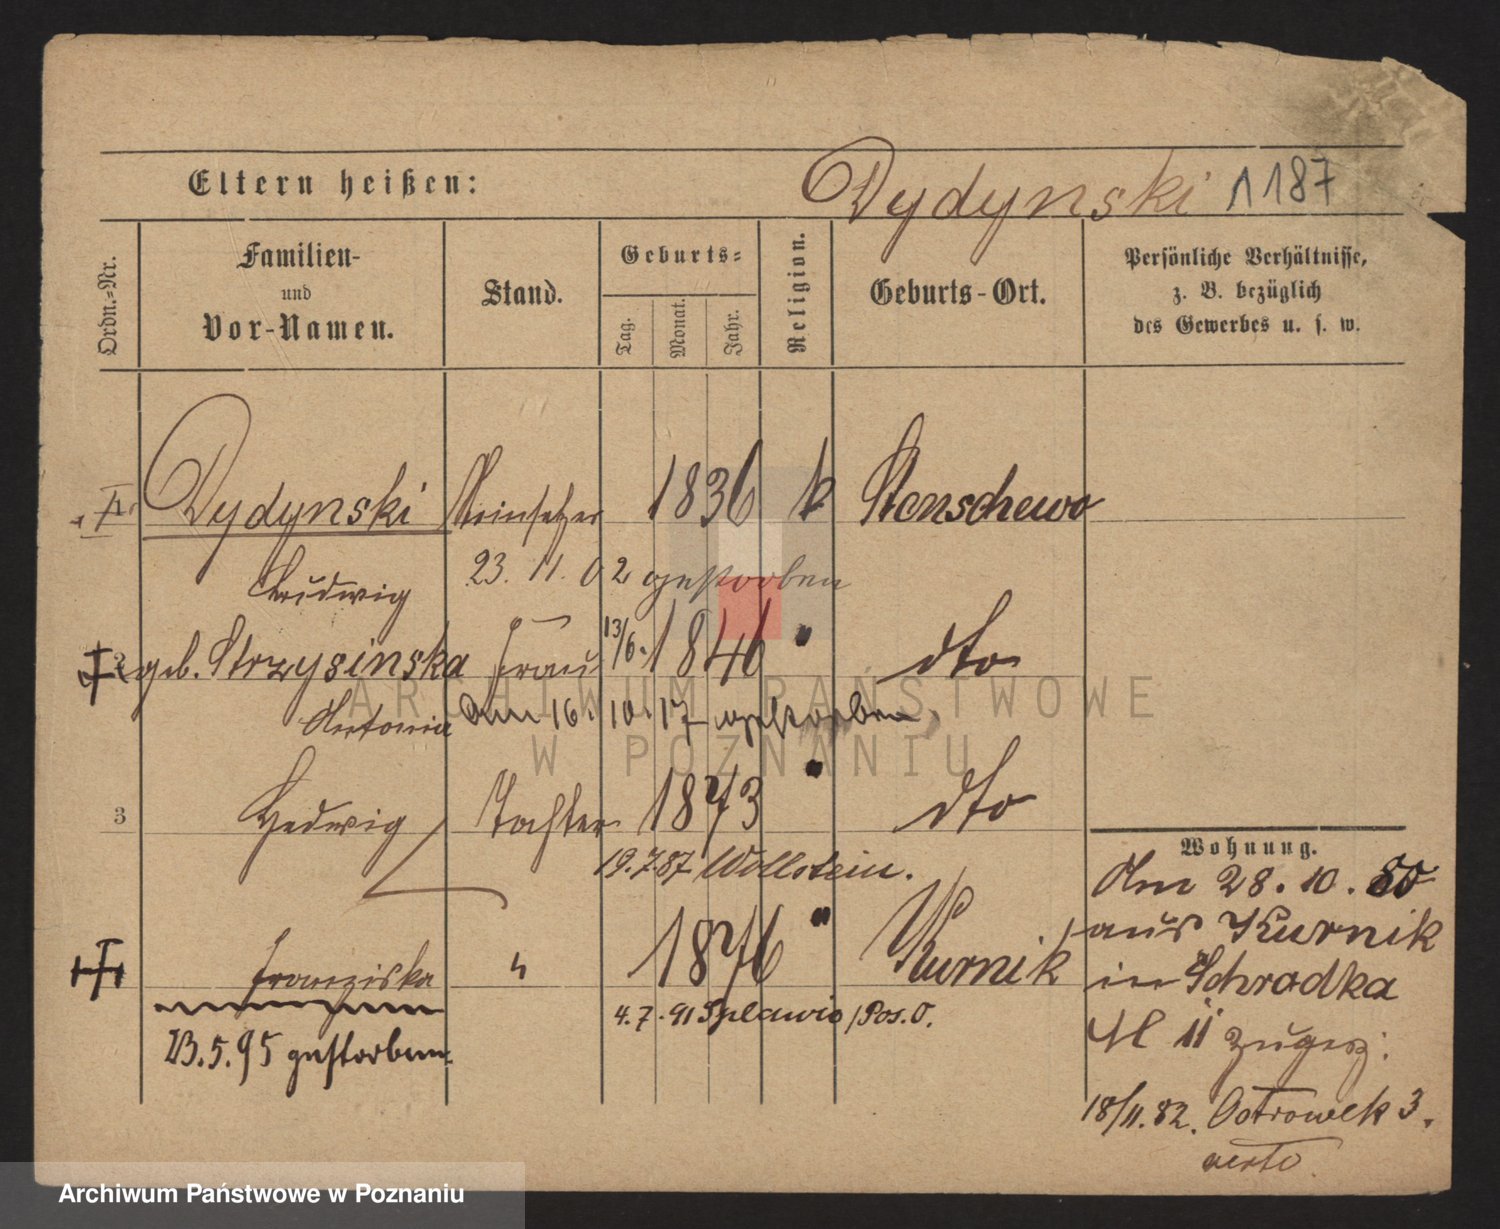 Eltern heißen:
Dydynski 1187
Ordn.-Nr.
Familien-
und
Vor-Namen.
Stand.
Geburts-
Tag.
Monat.
Jahr.
Religion.
Geburts-Ort.
Persönliche Verhältnisse,
z. B. bezüglich
des Gewerbes u. s. w.
Dydynski Steinsetzer 1836 k Stenschewo
Ludwig 23. 11. 02 gestorben
2 geb. Strzysinska Frau 13/6. 1846 " dto
Antonia am 16. 10. 17 gestorben
3 Hedwig Tochter 1873 " dto
19.7.87 Wollstein.
Franziska " 1876 " Kurnik
4. 7. 91 Splawie /Pos. O.
23. 5. 95 gestorben
Wohnung.
Am 28. 10. 80
aus Kurnik
in Schrodka
No 11 zugez:
18/11. 82. Ostrowek 3.
verto
ARCHIWUM PAŃSTWOWE
W POZNANIU
Archiwum Państwowe w Poznaniu